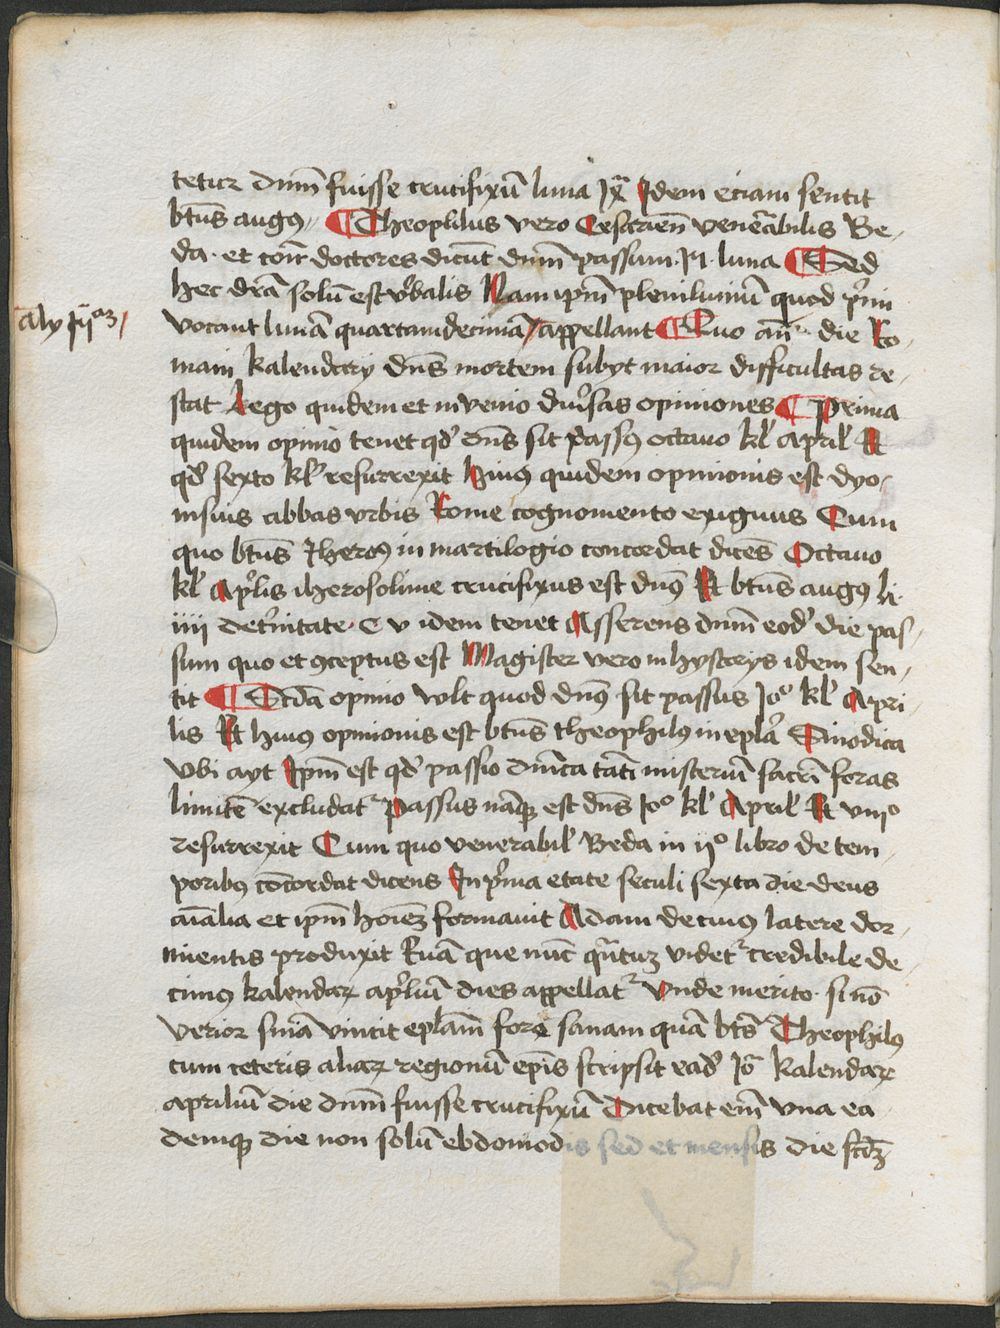 tetur dnm̄ fuisse crucifixū luna Idem eciam sentit
bt̄us augꝯ ¶ Theophilus vero Cesarien̄ venerabilis Be-
da· et doctores dicūt dnm̄ passum luna ¶ Sed
hec solū est vͦbalis Nam ipm̄ plenilunium quod
aly
vocant lunā quartamdecimā / appellant ¶ Quo die Ro-
mani kalendarij dn̄s mortem subyt maior difficultas re-
stat Lego quidem et invenio diuͦsas opiniones ¶ Prima
quidem opinio tenet qd̓ dn̄s sit passꝯ octauo kl̓ april̓ Et
qd̓ sexto kl̓ resurrexit Huiꝯ quidem opinionis est dyo-
nisius abbas vrbis Rome cognomento exiguus Cum
quo bt̄us Iheroꝯ in martilogio concordat dicēs Octauo
kl̓ Ap̓lis iherosolime crucifixus est dnꝯ Et bt̄us augꝯ li·
iiii det̓nitate· C v idem tenet Asserens dnm̄ eod̓ die pas-
sum quo et ꝯceptus est Magister vero in hystorijs idem sen-
tit ¶ Scd̄a opinio vult quod dnꝯ sit passus kl̓ Apri-
lis Et huiꝯ opinionis est bt̄us theophilꝯ in epl̄a Sinodica
Vbi ayt Ipm̄ est qd̓ passio dn̄ica tātī misteriū sacrī foras
limitē excludat᷑ Passus nāqꝫ est dn̄s kl̓ April̓ Et viiiº
resurrexit Cum quo venerabil̓ Beda in ijº libro de tem-
poribꝯ cōcordat dicens In p̓ma etate seculi sexta die deus
aīalia et ipm̄ hoīeꝫ formauit Adam de cuiꝯ latere dor-
mientis produxit Euā que nūc qn̄tuꝫ videt᷑ credibile de-
cimꝯ kalendaꝝ ap̓liū dies appellat᷑ Vnde merito· si nō
verior sn̄ia vincit epl̄am fore sanam quā bt̄s Theophilꝯ
cum ceteris aliaꝝ regionū ep̄is scripsit ead̓ kalendaꝝ
apriliū die dnm̄ fuisse crucifixū Dicebat em̄ vna ea-
demqꝫ die non solū ebdomodis sed et mensis die scd̄ꝫ